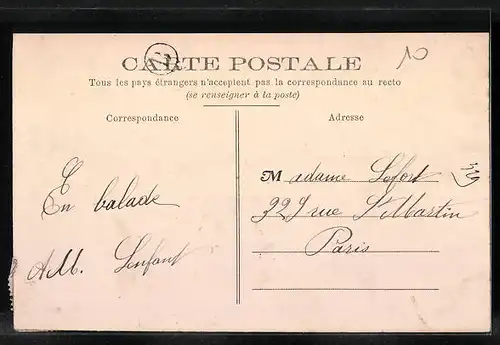 CARTE POSTALE
10
Tous les pays étrangers n'acceptent pas la correspondance au recto
(se renseigner à la poste)
Correspondance
Adresse
En balade
A.M. Lenfant
Madame Lefort
329 rue St Martin
Paris